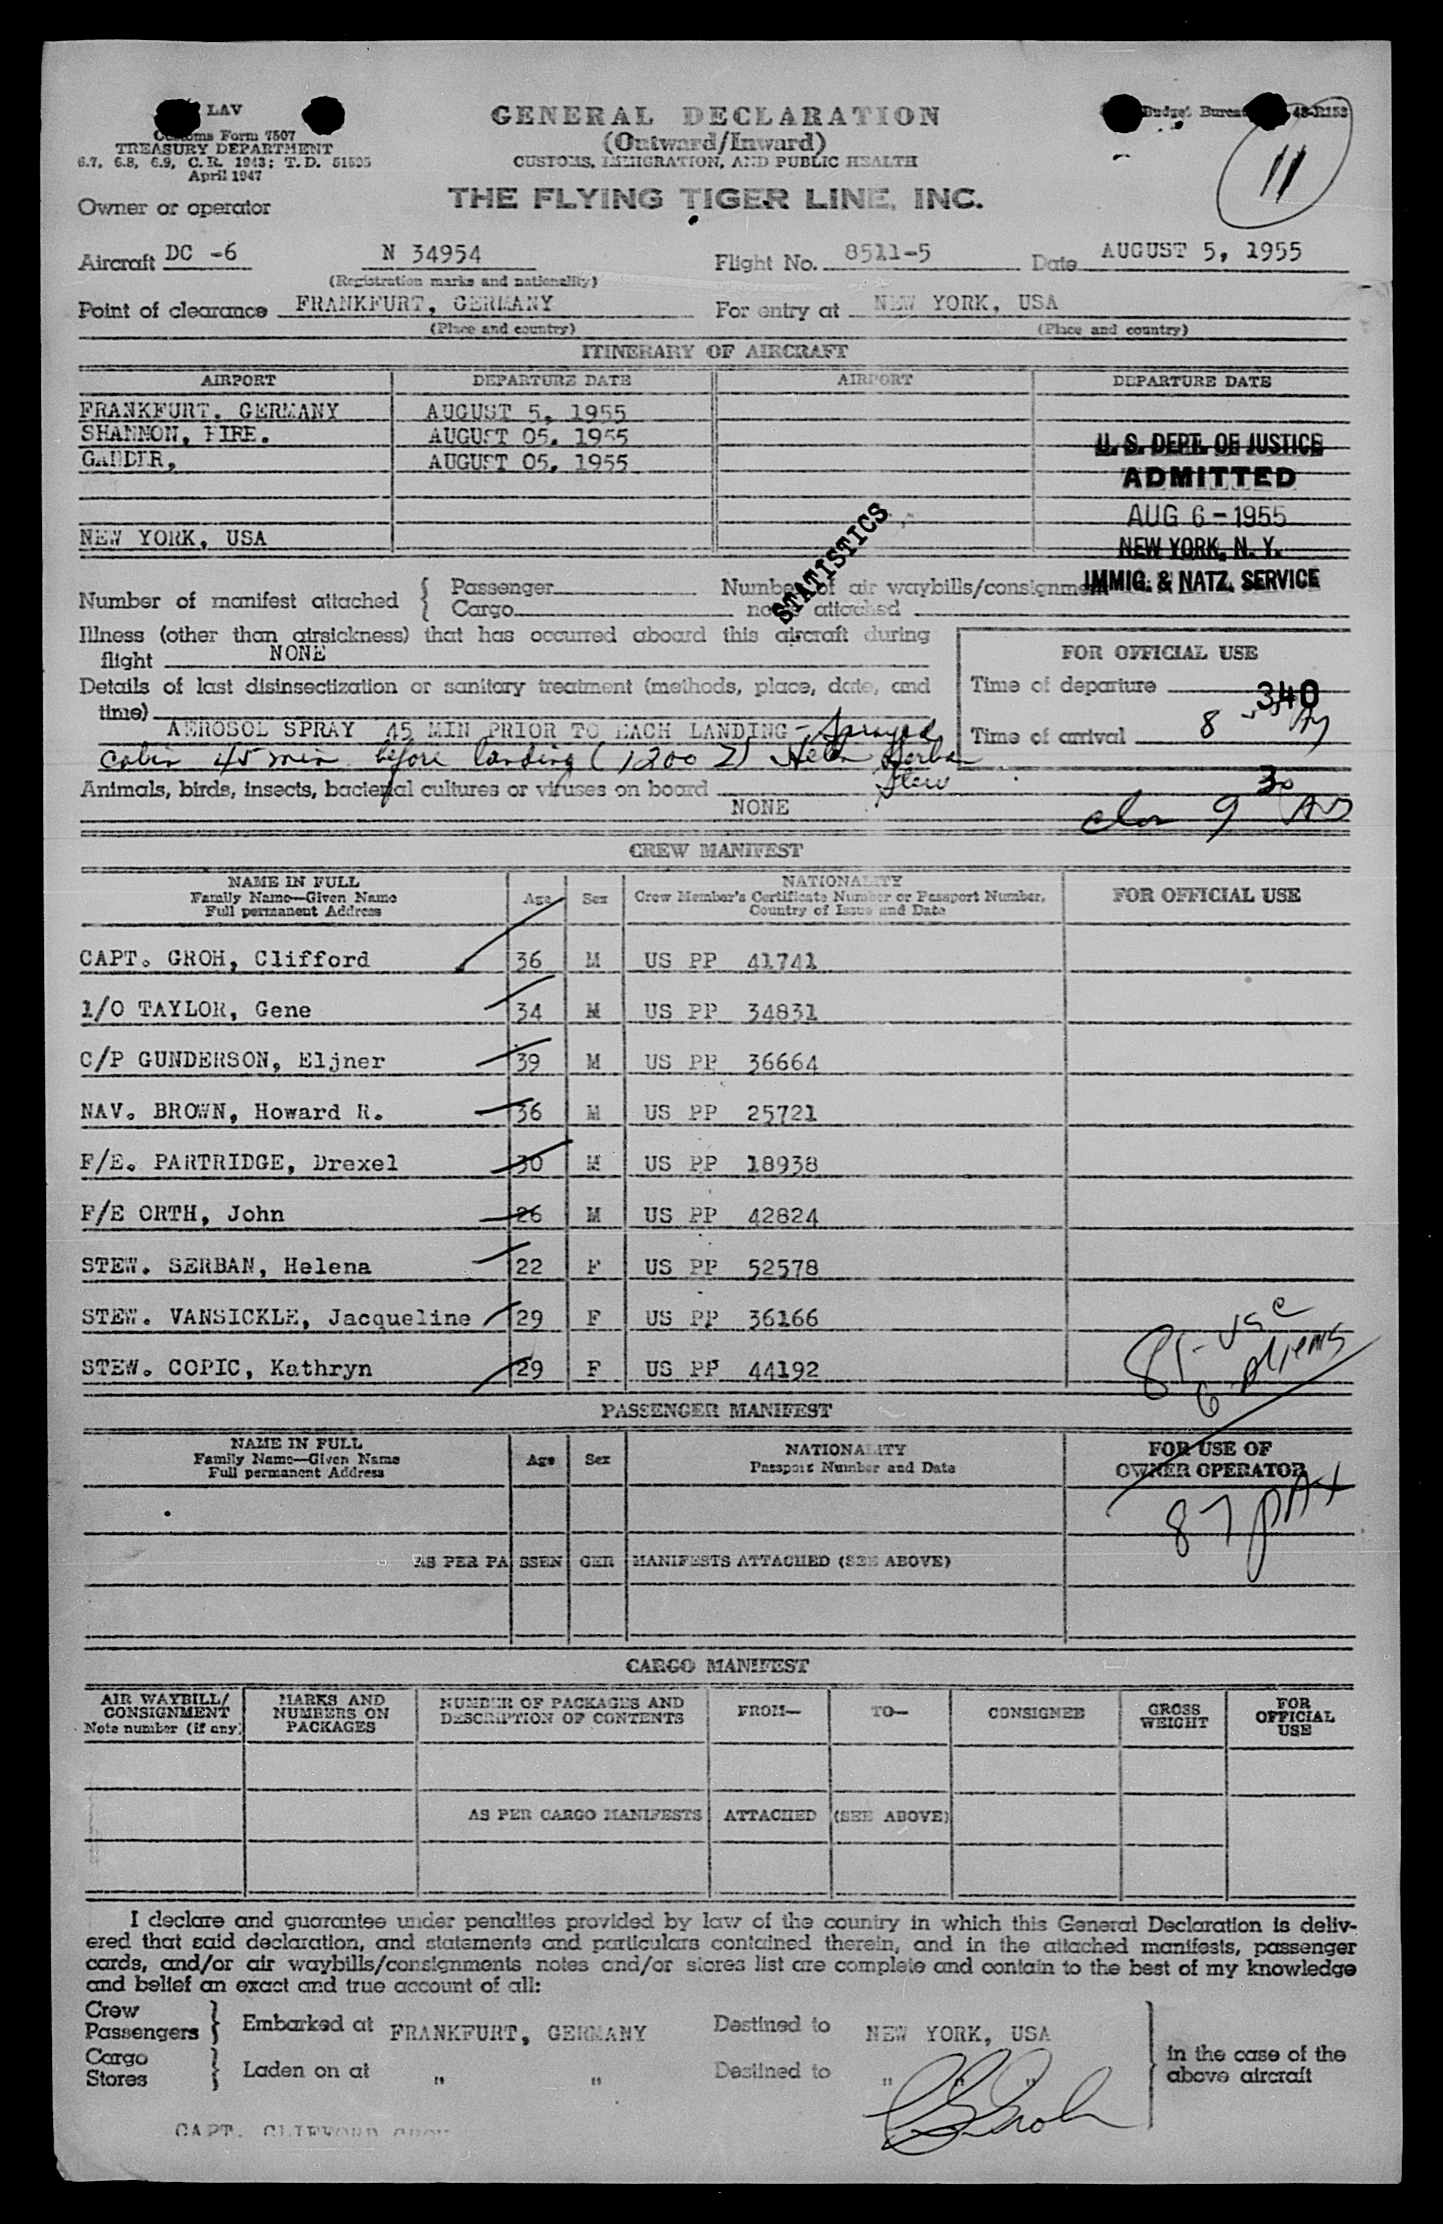 LAV
Customs Form 7507
TREASURY DEPARTMENT
6.7, 6.8, 6.9, C.R. 1943; T.D. 51595
April 1947
Budget Bureau 43-R153
11
GENERAL DECLARATION
(Outward/Inward)
CUSTOMS, IMMIGRATION, AND PUBLIC HEALTH
Owner or operator THE FLYING TIGER LINE, INC.
Aircraft DC -6 N 34954 Flight No. 8511-5 Date AUGUST 5, 1955
(Registration marks and nationality)
Point of clearance FRANKFURT, GERMANY For entry at NEW YORK, USA
(Place and country) (Place and country)
ITINERARY OF AIRCRAFT
AIRPORT DEPARTURE DATE AIRPORT DEPARTURE DATE
FRANKFURT. GERMANY AUGUST 5, 1955
SHANNON, EIRE. AUGUST 05, 1955
GANDER, AUGUST 05, 1955
NEW YORK, USA
U. S. DEPT. OF JUSTICE
ADMITTED
AUG 6 - 1955
NEW YORK, N. Y.
IMMIG. & NATZ. SERVICE
STATISTICS
Number of manifest attached { Passenger Number of air waybills/consignment
Cargo notes attached
Illness (other than airsickness) that has occurred aboard this aircraft during
flight NONE
Details of last disinsectization or sanitary treatment (methods, place, date, and
time)
AEROSOL SPRAY 45 MIN PRIOR TO EACH LANDING - Sprayed
cabin 45 min before landing (1200 Z) Helen Serban
Stew
FOR OFFICIAL USE
Time of departure 340
Time of arrival 8
Animals, birds, insects, bacterial cultures or viruses on board
NONE
9 30
CREW MANIFEST
NAME IN FULL
Family Name—Given Name
Full permanent Address
Age Sex
NATIONALITY
Crew Member's Certificate Number or Passport Number,
Country of Issue and Date
FOR OFFICIAL USE
CAPT. GROH, Clifford 36 M US PP 41741
1/O TAYLOR, Gene 34 M US PP 34831
C/P GUNDERSON, Eljner 39 M US PP 36664
NAV. BROWN, Howard R. 36 M US PP 25721
F/E. PARTRIDGE, Drexel 30 M US PP 18938
F/E ORTH, John 26 M US PP 42824
STEW. SERBAN, Helena 22 F US PP 52578
STEW. VANSICKLE, Jacqueline 29 F US PP 36166
STEW. COPIC, Kathryn 29 F US PP 44192
81 - USC
6 - Aliens
PASSENGER MANIFEST
NAME IN FULL
Family Name—Given Name
Full permanent Address
Age Sex
NATIONALITY
Passport Number and Date
FOR USE OF
OWNER OPERATOR
87 pax
AS PER PASSENGER MANIFESTS ATTACHED (SEE ABOVE)
CARGO MANIFEST
AIR WAYBILL/
CONSIGNMENT
Note number (if any)
MARKS AND
NUMBERS ON
PACKAGES
NUMBER OF PACKAGES AND
DESCRIPTION OF CONTENTS
FROM— TO— CONSIGNEE
GROSS
WEIGHT
FOR
OFFICIAL
USE
AS PER CARGO MANIFESTS ATTACHED (SEE ABOVE)
I declare and guarantee under penalties provided by law of the country in which this General Declaration is deliv-
ered that said declaration, and statements and particulars contained therein, and in the attached manifests, passenger
cards, and/or air waybills/consignments notes and/or stores list are complete and contain to the best of my knowledge
and belief an exact and true account of all:
Crew
Passengers } Embarked at FRANKFURT, GERMANY Destined to NEW YORK, USA
Cargo
Stores } Laden on at " " Destined to " " "
in the case of the
above aircraft
CAPT. CLIFFORD GROH